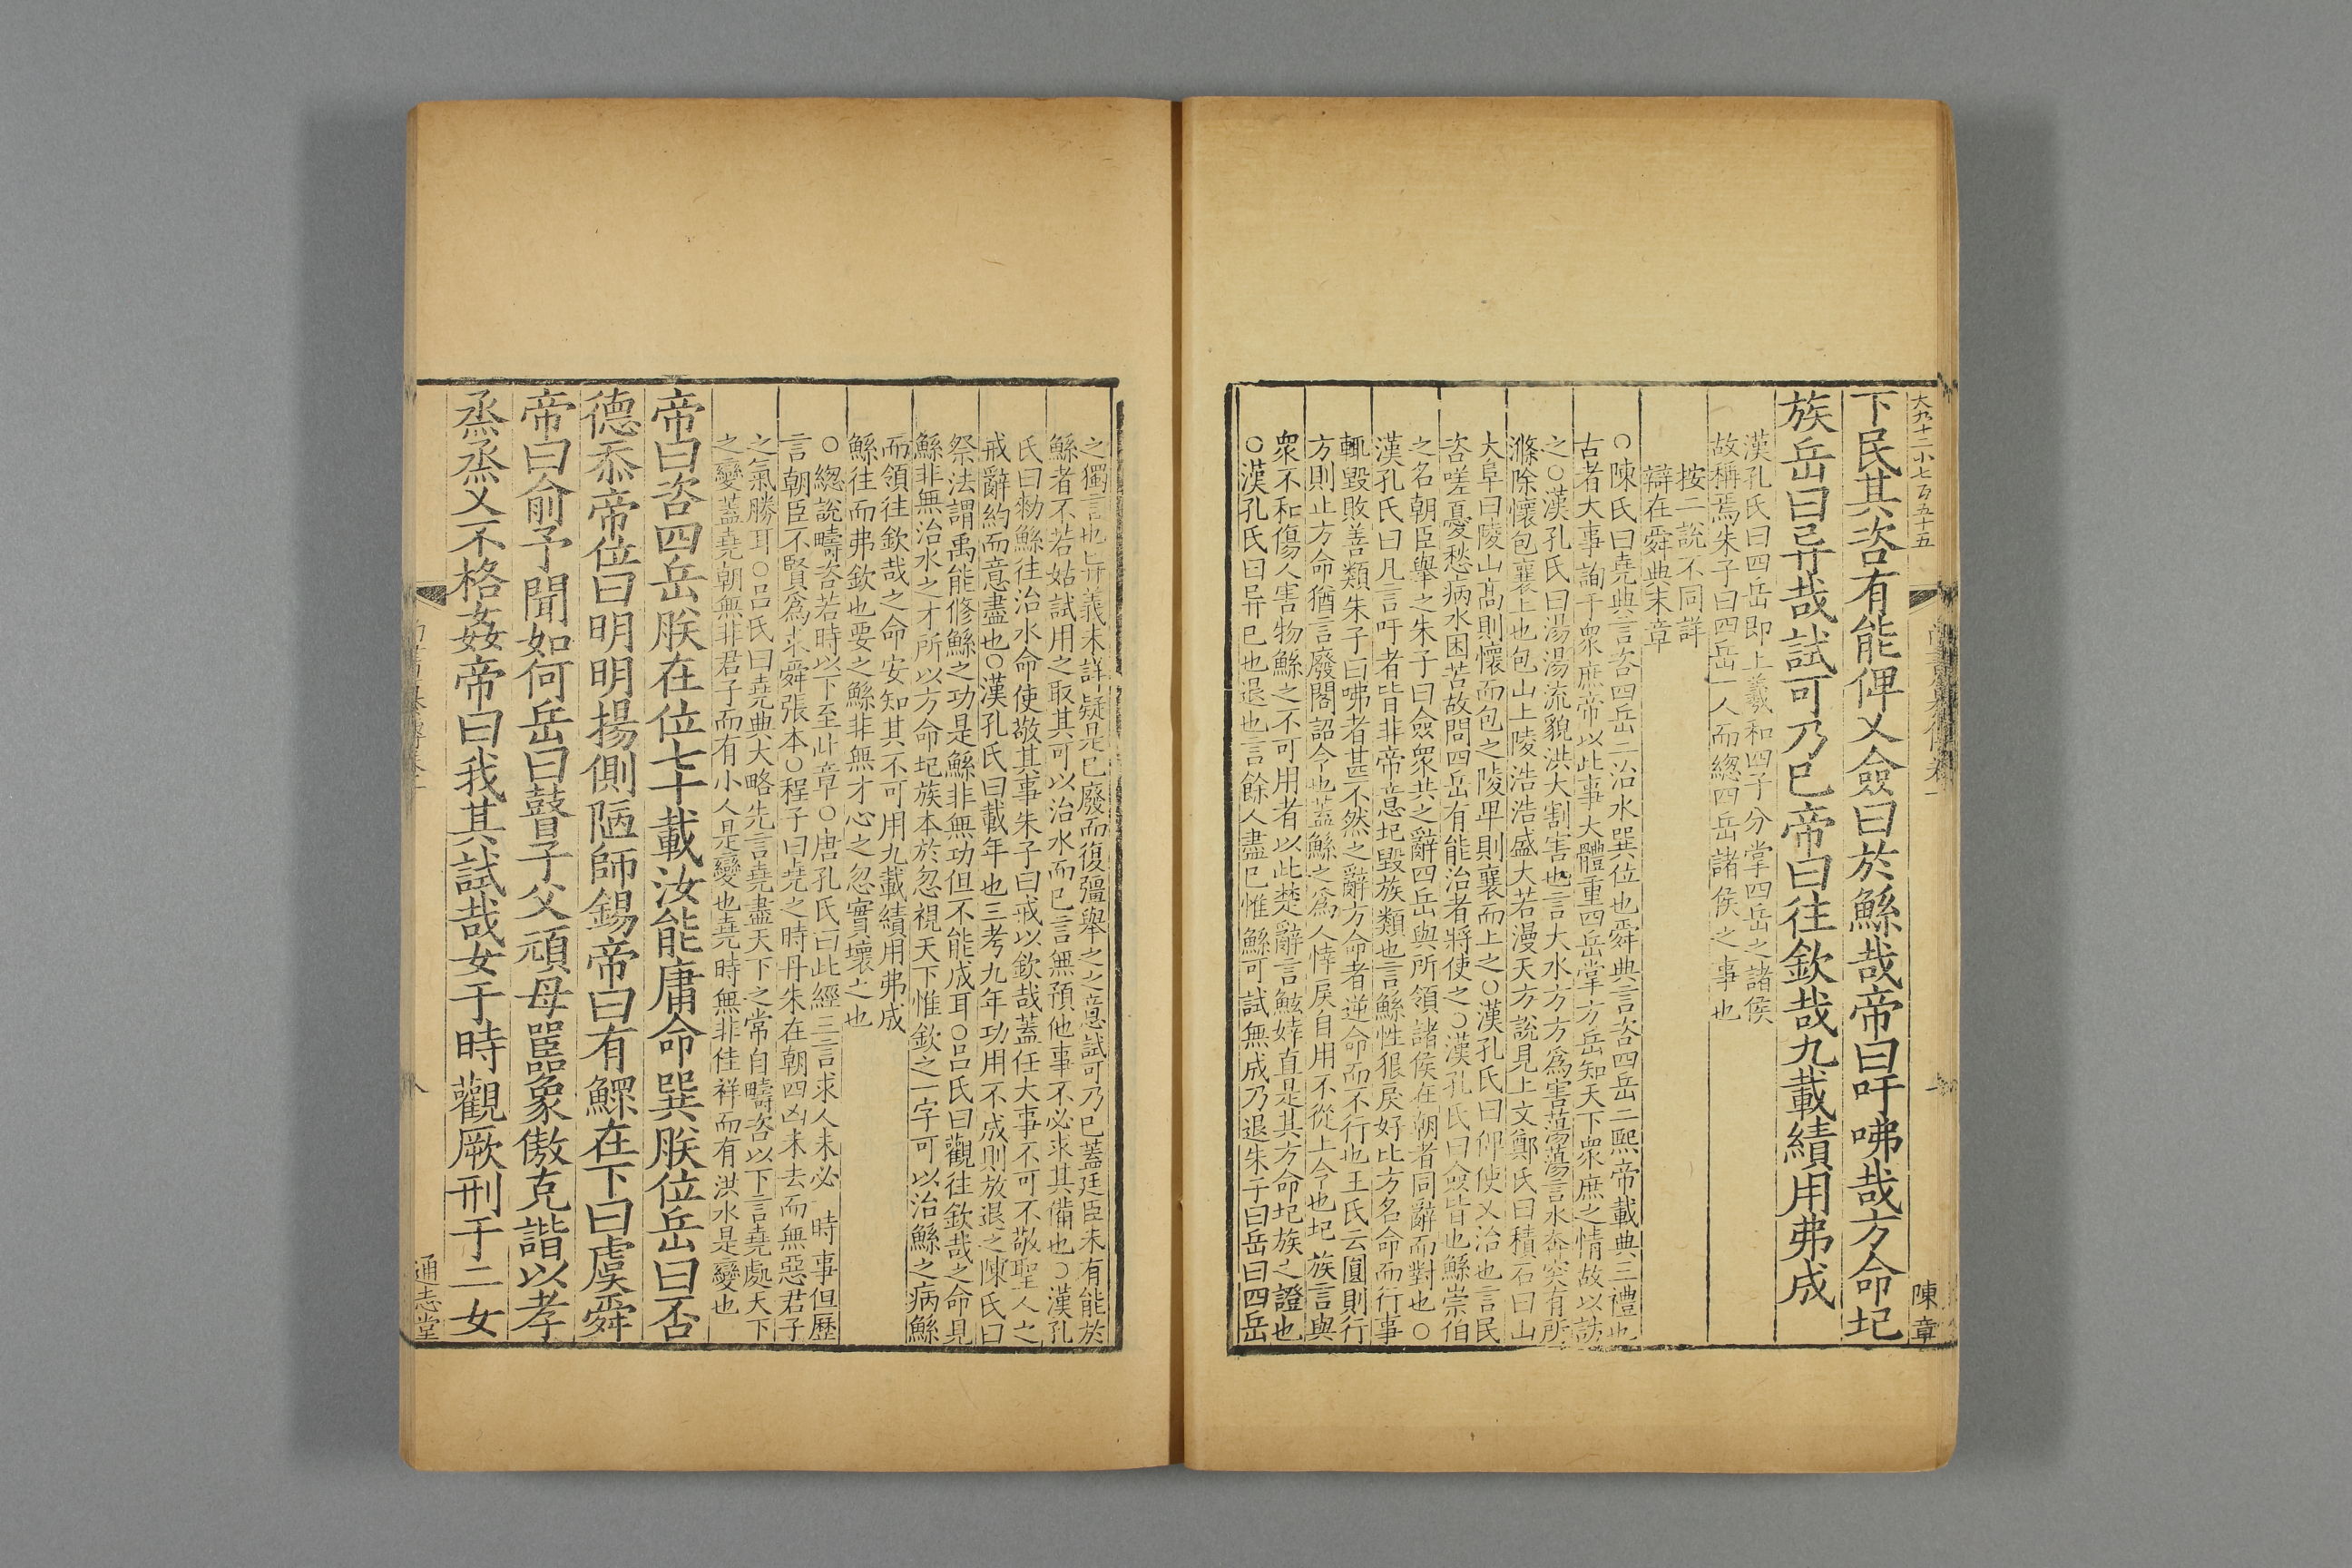 大九十二小七百五十五
陳章
下民其咨有能俾乂僉曰於鯀哉帝曰吁咈哉方命圮
族岳曰异哉試可乃已帝曰往欽哉九載績用弗成
漢孔氏曰四岳即上羲和四子分掌四岳之諸侯
故稱焉朱子曰四岳一人而緫四岳諸侯之事也
按二說不同詳
辯在舜典末章
○陳氏曰堯典言咨四岳二治水巽位也舜典言咨四岳二熙帝載典三禮也
古者大事詢于衆庶帝以此事大體重四岳掌方岳知天下衆庶之情故以訪
之○漢孔氏曰湯湯流貌洪大割害也言大水方方為害蕩蕩言水奔突有所
滌除懷包襄上也包山上陵浩浩盛大若漫天方說見上文鄭氏曰積石曰山
大阜曰陵山髙則懷而包之陵卑則襄而上之○漢孔氏曰俾使乂治也言民
咨嗟憂愁病水困苦故問四岳有能治者將使之○漢孔氏曰僉皆也鯀崇伯
之名朝臣舉之朱子曰僉衆共之辭四岳與所領諸侯在朝者同辭而對也○
漢孔氏曰凡言吁者皆非帝意圮毀族類也言鯀性狠戾好比方名命而行事
輒毀敗善類朱子曰咈者甚不然之辭方命者逆命而不行也王氏云圓則行
方則止方命猶言廢閣詔令也蓋鯀之為人悻戾自用不從上令也圮族言與
衆不和傷人害物鯀之不可用者以此楚辭言鯀婞直是其方命圮族之證也
○漢孔氏曰异已也退也言餘人盡已惟鯀可試無成乃退朱子曰岳曰四岳
之獨言也异義未詳疑是已廢而復彊舉之之意試可乃已蓋廷臣未有能於
鯀者不若姑試用之取其可以治水而已言無預他事不必求其備也○漢孔
氏曰勑鯀往治水命使敬其事朱子曰戒以欽哉蓋任大事不可不敬聖人之
戒辭約而意盡也○漢孔氏曰載年也三考九年功用不成則放退之陳氏曰
祭法謂禹能修鯀之功是鯀非無功但不能成耳○呂氏曰觀往欽哉之命見
鯀非無治水之才所以方命圮族本於忽視天下惟欽之一字可以治鯀之病鯀
而領往欽哉之命安知其不可用九載績用弗成
鯀往而弗欽也要之鯀非無才心之忽實壞之也
○緫說疇咨若時以下至此章○唐孔氏曰此經三言求人未必 時事但歷
言朝臣不賢為求舜張本○程子曰堯之時丹朱在朝四凶未去而無惡君子
之氣勝耳○呂氏曰堯典大略先言堯盡天下之常自疇咨以下言堯處天下
之變蓋堯朝無非君子而有小人是變也堯時無非佳祥而有洪水是變也
帝曰咨四岳朕在位七十載汝能庸命巽朕位岳曰否
德忝帝位曰明明揚側陋師錫帝曰有鰥在下曰虞舜
帝曰俞予聞如何岳曰瞽子父頑母嚚象傲克諧以孝
烝烝乂不格姦帝曰我其試哉女于時觀厥刑于二女
八
通志堂